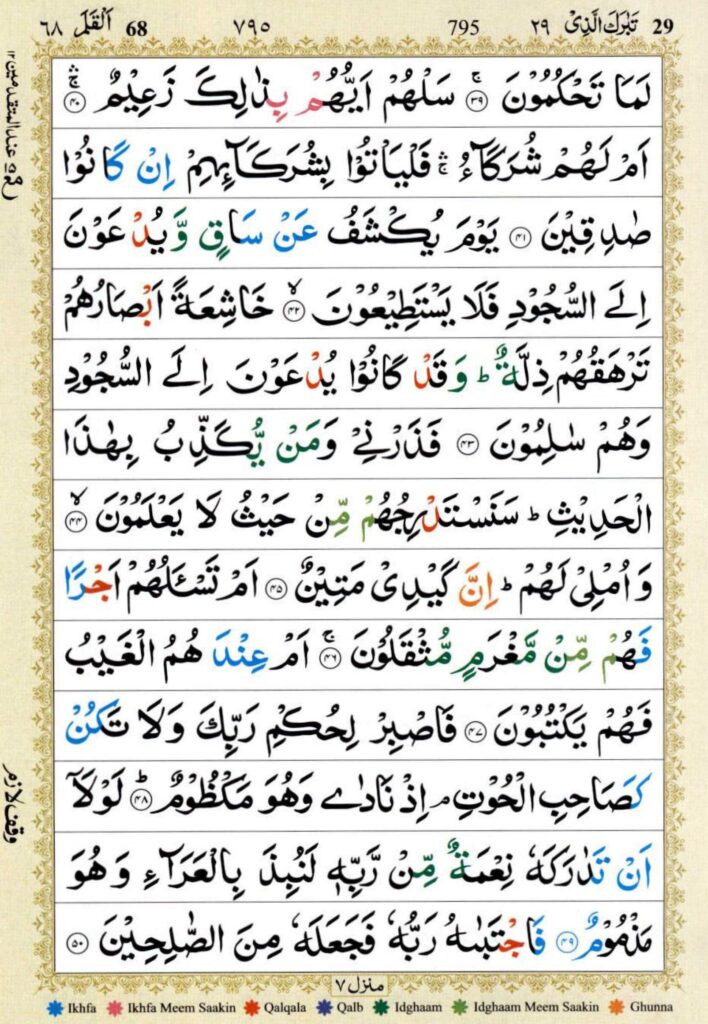 29 تَبٰرَكَ الَّذِىْ ٢٩ 795 ٧٩٥ 68 اَلْقَلَم ٦٨
لَمَا تَحْكُمُوْنَ ۚ‏ ﴿۳۹﴾ سَلْهُمْ اَيُّهُمْ بِذٰلِكَ زَعِيْمٌ ۛۚ‏ ﴿۴۰﴾
اَمْ لَهُمْ شُرَكَآءُ ۛۚ فَلْيَاْتُوْا بِشُرَكَآٮِٕهِمْ اِنْ كَانُوْا
صٰدِقِيْنَ ﴿۴۱﴾ يَوْمَ يُكْشَفُ عَنْ سَاقٍ وَّيُدْعَوْنَ
اِلَى السُّجُوْدِ فَلَا يَسْتَطِيْعُوْنَ ۙ‏ ﴿۴۲﴾ خَاشِعَةً اَبْصَارُهُمْ
تَرْهَقُهُمْ ذِلَّةٌ ؕ وَقَدْ كَانُوْا يُدْعَوْنَ اِلَى السُّجُوْدِ
وَهُمْ سٰلِمُوْنَ ﴿۴۳﴾ فَذَرْنِىْ وَمَنْ يُّكَذِّبُ بِهٰذَا
الْحَدِيْثِ ؕ سَنَسْتَدْرِجُهُمْ مِّنْ حَيْثُ لَا يَعْلَمُوْنَ ۙ‏ ﴿۴۴﴾
وَاُمْلِىْ لَهُمْ ؕ اِنَّ كَيْدِىْ مَتِيْنٌ ﴿۴۵﴾ اَمْ تَسْـَٔلُهُمْ اَجْرًا
فَهُمْ مِّنْ مَّغْرَمٍ مُّثْقَلُوْنَ ۚ‏ ﴿۴۶﴾ اَمْ عِنْدَهُمُ الْغَيْبُ
فَهُمْ يَكْتُبُوْنَ ﴿۴۷﴾ فَاصْبِرْ لِحُكْمِ رَبِّكَ وَلَا تَكُنْ
كَصَاحِبِ الْحُوْتِ ۘ اِذْ نَادٰى وَهُوَ مَكْظُوْمٌ ؕ‏ ﴿۴۸﴾ لَوْلَاۤ
اَنْ تَدٰرَكَهٗ نِعْمَةٌ مِّنْ رَّبِّهٖ لَنُبِذَ بِالْعَرَآءِ وَهُوَ
مَذْمُوْمٌ ﴿۴۹﴾ فَاجْتَبٰٮهُ رَبُّهٗ فَجَعَلَهٗ مِنَ الصّٰلِحِيْنَ ﴿۵۰﴾
منزل ٧
Ikhfa Ikhfa Meem Saakin Qalqala Qalb Idghaam Idghaam Meem Saakin Ghunna
مع عند المتقدمين ١٢
وقف لازم